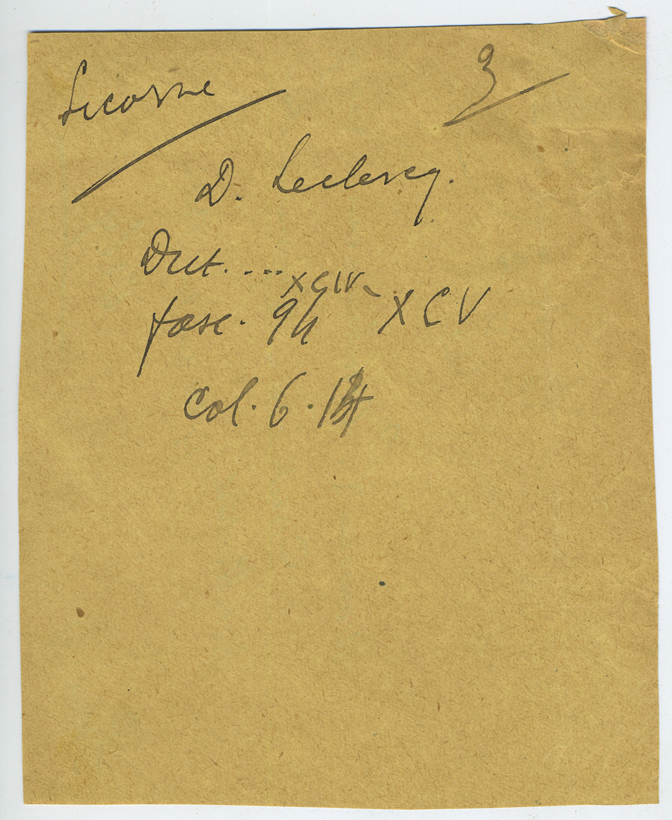 Licorne 3
D. Leclercq.
Dict. ....
XCIV-
fasc. 94 XCV
Col. 6.14